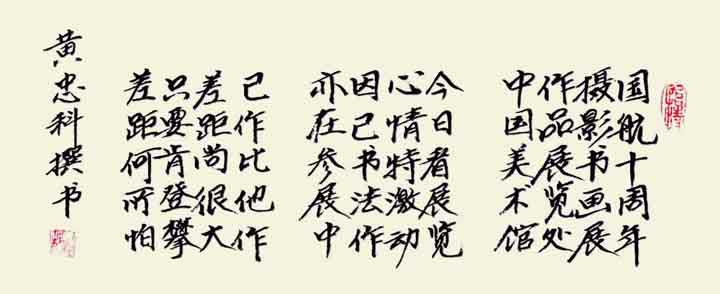 国航十周年
摄影书画展
作品展览处
中国美术馆
今日看展览
心情特激动
因己书法作
亦在参展中
己作比他作
差距尚很大
只要肯登攀
差距何所怕
黄忠科撰书